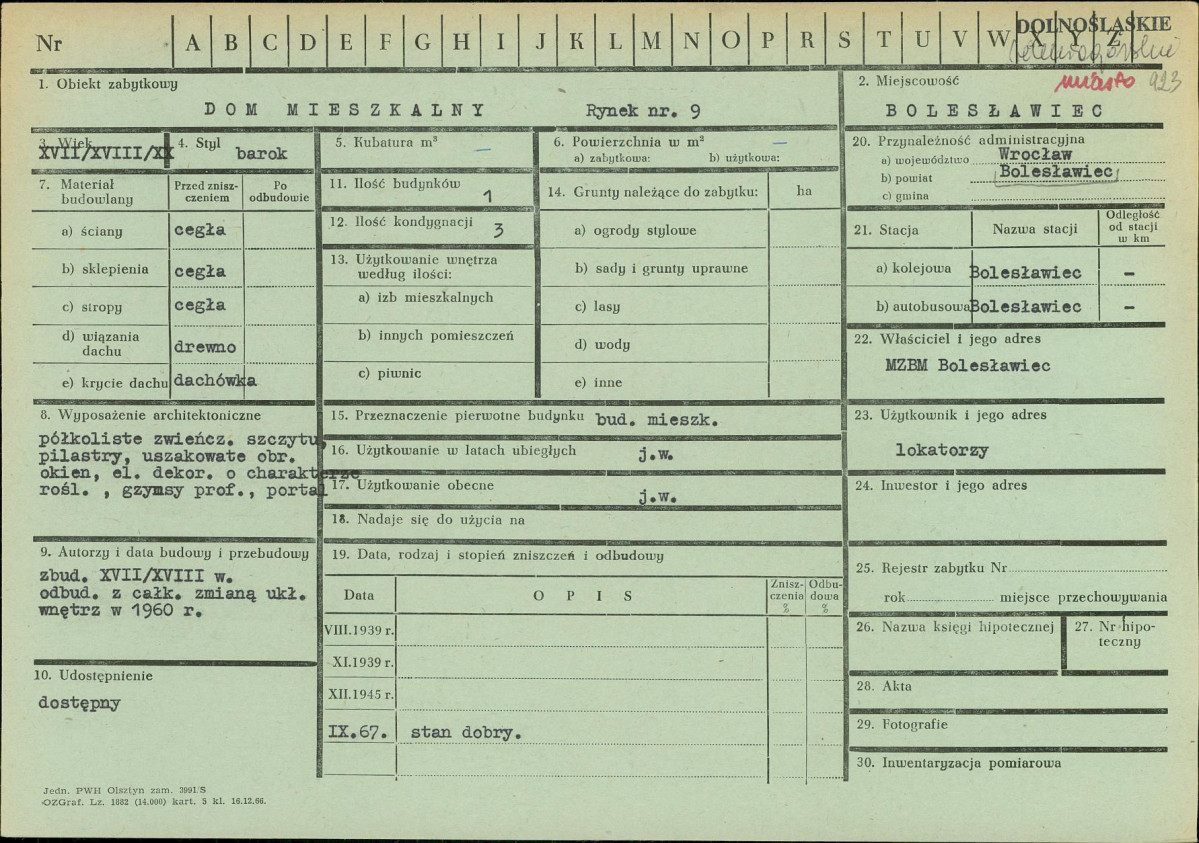 Nr A B C D E F G H I J K L M N O P R S T U V W X Y Z
DOLNOŚLĄSKIE
miasto 923
1. Obiekt zabytkowy
DOM MIESZKALNY Rynek nr. 9
2. Miejscowość
BOLESŁAWIEC
3. Wiek
XVII/XVIII/XX
4. Styl
barok
5. Kubatura m³
—
6. Powierzchnia w m²
—
a) zabytkowa: b) użytkowa:
20. Przynależność administracyjna
a) województwo Wrocław
b) powiat Bolesławiec
c) gmina
7. Materiał budowlany
Przed zniszczeniem
Po odbudowie
a) ściany cegła
b) sklepienia cegła
c) stropy cegła
d) wiązania dachu drewno
e) krycie dachu dachówka
11. Ilość budynków
1
12. Ilość kondygnacji
3
13. Użytkowanie wnętrza
według ilości:
a) izb mieszkalnych
b) innych pomieszczeń
c) piwnic
14. Grunty należące do zabytku: ha
a) ogrody stylowe
b) sady i grunty uprawne
c) lasy
d) wody
e) inne
21. Stacja Nazwa stacji
Odległość
od stacji
w km
a) kolejowa Bolesławiec –
b) autobusowa Bolesławiec –
22. Właściciel i jego adres
MZBM Bolesławiec
8. Wyposażenie architektoniczne
półkoliste zwieńcz. szczytu,
pilastry, uszakowate obr.
okien, el. dekor. o charakterze
rośl. , gzymsy prof., portal
15. Przeznaczenie pierwotne budynku bud. mieszk.
16. Użytkowanie w latach ubiegłych j.w.
17. Użytkowanie obecne j.w.
18. Nadaje się do użycia na
23. Użytkownik i jego adres
lokatorzy
24. Inwestor i jego adres
9. Autorzy i data budowy i przebudowy
zbud. XVII/XVIII w.
odbud. z całk. zmianą ukł.
wnętrz w 1960 r.
19. Data, rodzaj i stopień zniszczeń i odbudowy
Data OPIS
Zniszczenia %
Odbudowa %
VIII.1939 r.
XI.1939 r.
XII.1945 r.
IX.67. stan dobry.
25. Rejestr zabytku Nr
rok miejsce przechowywania
26. Nazwa księgi hipotecznej
27. Nr hipoteczny
28. Akta
29. Fotografie
30. Inwentaryzacja pomiarowa
10. Udostępnienie
dostępny
Jedn. PWH Olsztyn zam. 3991/S
OZGraf. Lz. 1882 (14.000) kart. 5 kl. 16.12.66.